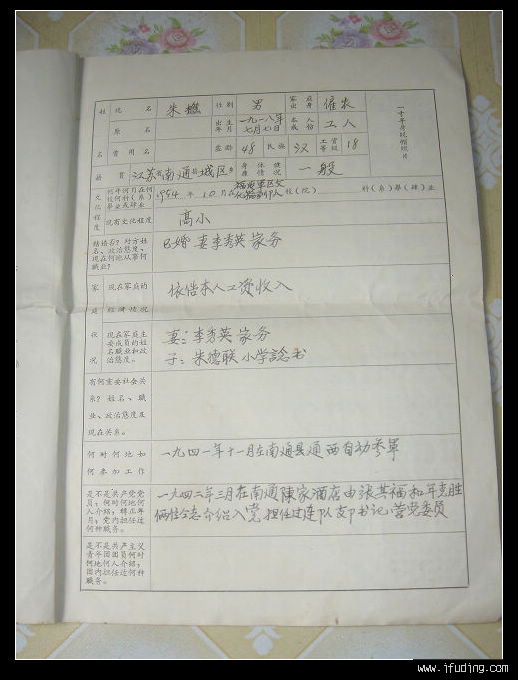 姓 现名 朱樵 性别 男 家庭出身 雇农 一寸半身脱帽照片
名 原名 出生年月 一九一八年七月七日 本人成份 工人
曾用名 年龄 48 民族 汉 工资等级 18
籍贯 江苏省南通县城区乡 身体健康情况 一般
文化程度 何年何月在何校何科(系)毕业或肄业 1954年10月在 校(院) 科(系)毕(肄)业
现有文化程度 高小
结婚否?对方姓名、政治态度、现在何地从事何职业? 已婚 妻李秀英家务
家庭状况 现在家庭的经济情况 依借本人工资收入
现在家庭主要成员的姓名职业和政治态度。 妻:李秀英家务
子:朱德联小学念书
有何重要社会关系?姓名、职业、政治态度及现在关系。
何时何地如何参加工作 一九四一年十一月在南通县通西自动参军
是不是共产党党员;何时何地何人介绍;转正年月;党内担任过何种职务。 一九四二年三月在南通陳家酒店由张其福和年克胜
俩位同志介绍入党.担任过连队支部书记.营党委员
是不是共产主义青年团团员何时何地何人介绍;团内担任过何种职务。
www.ifuding.com